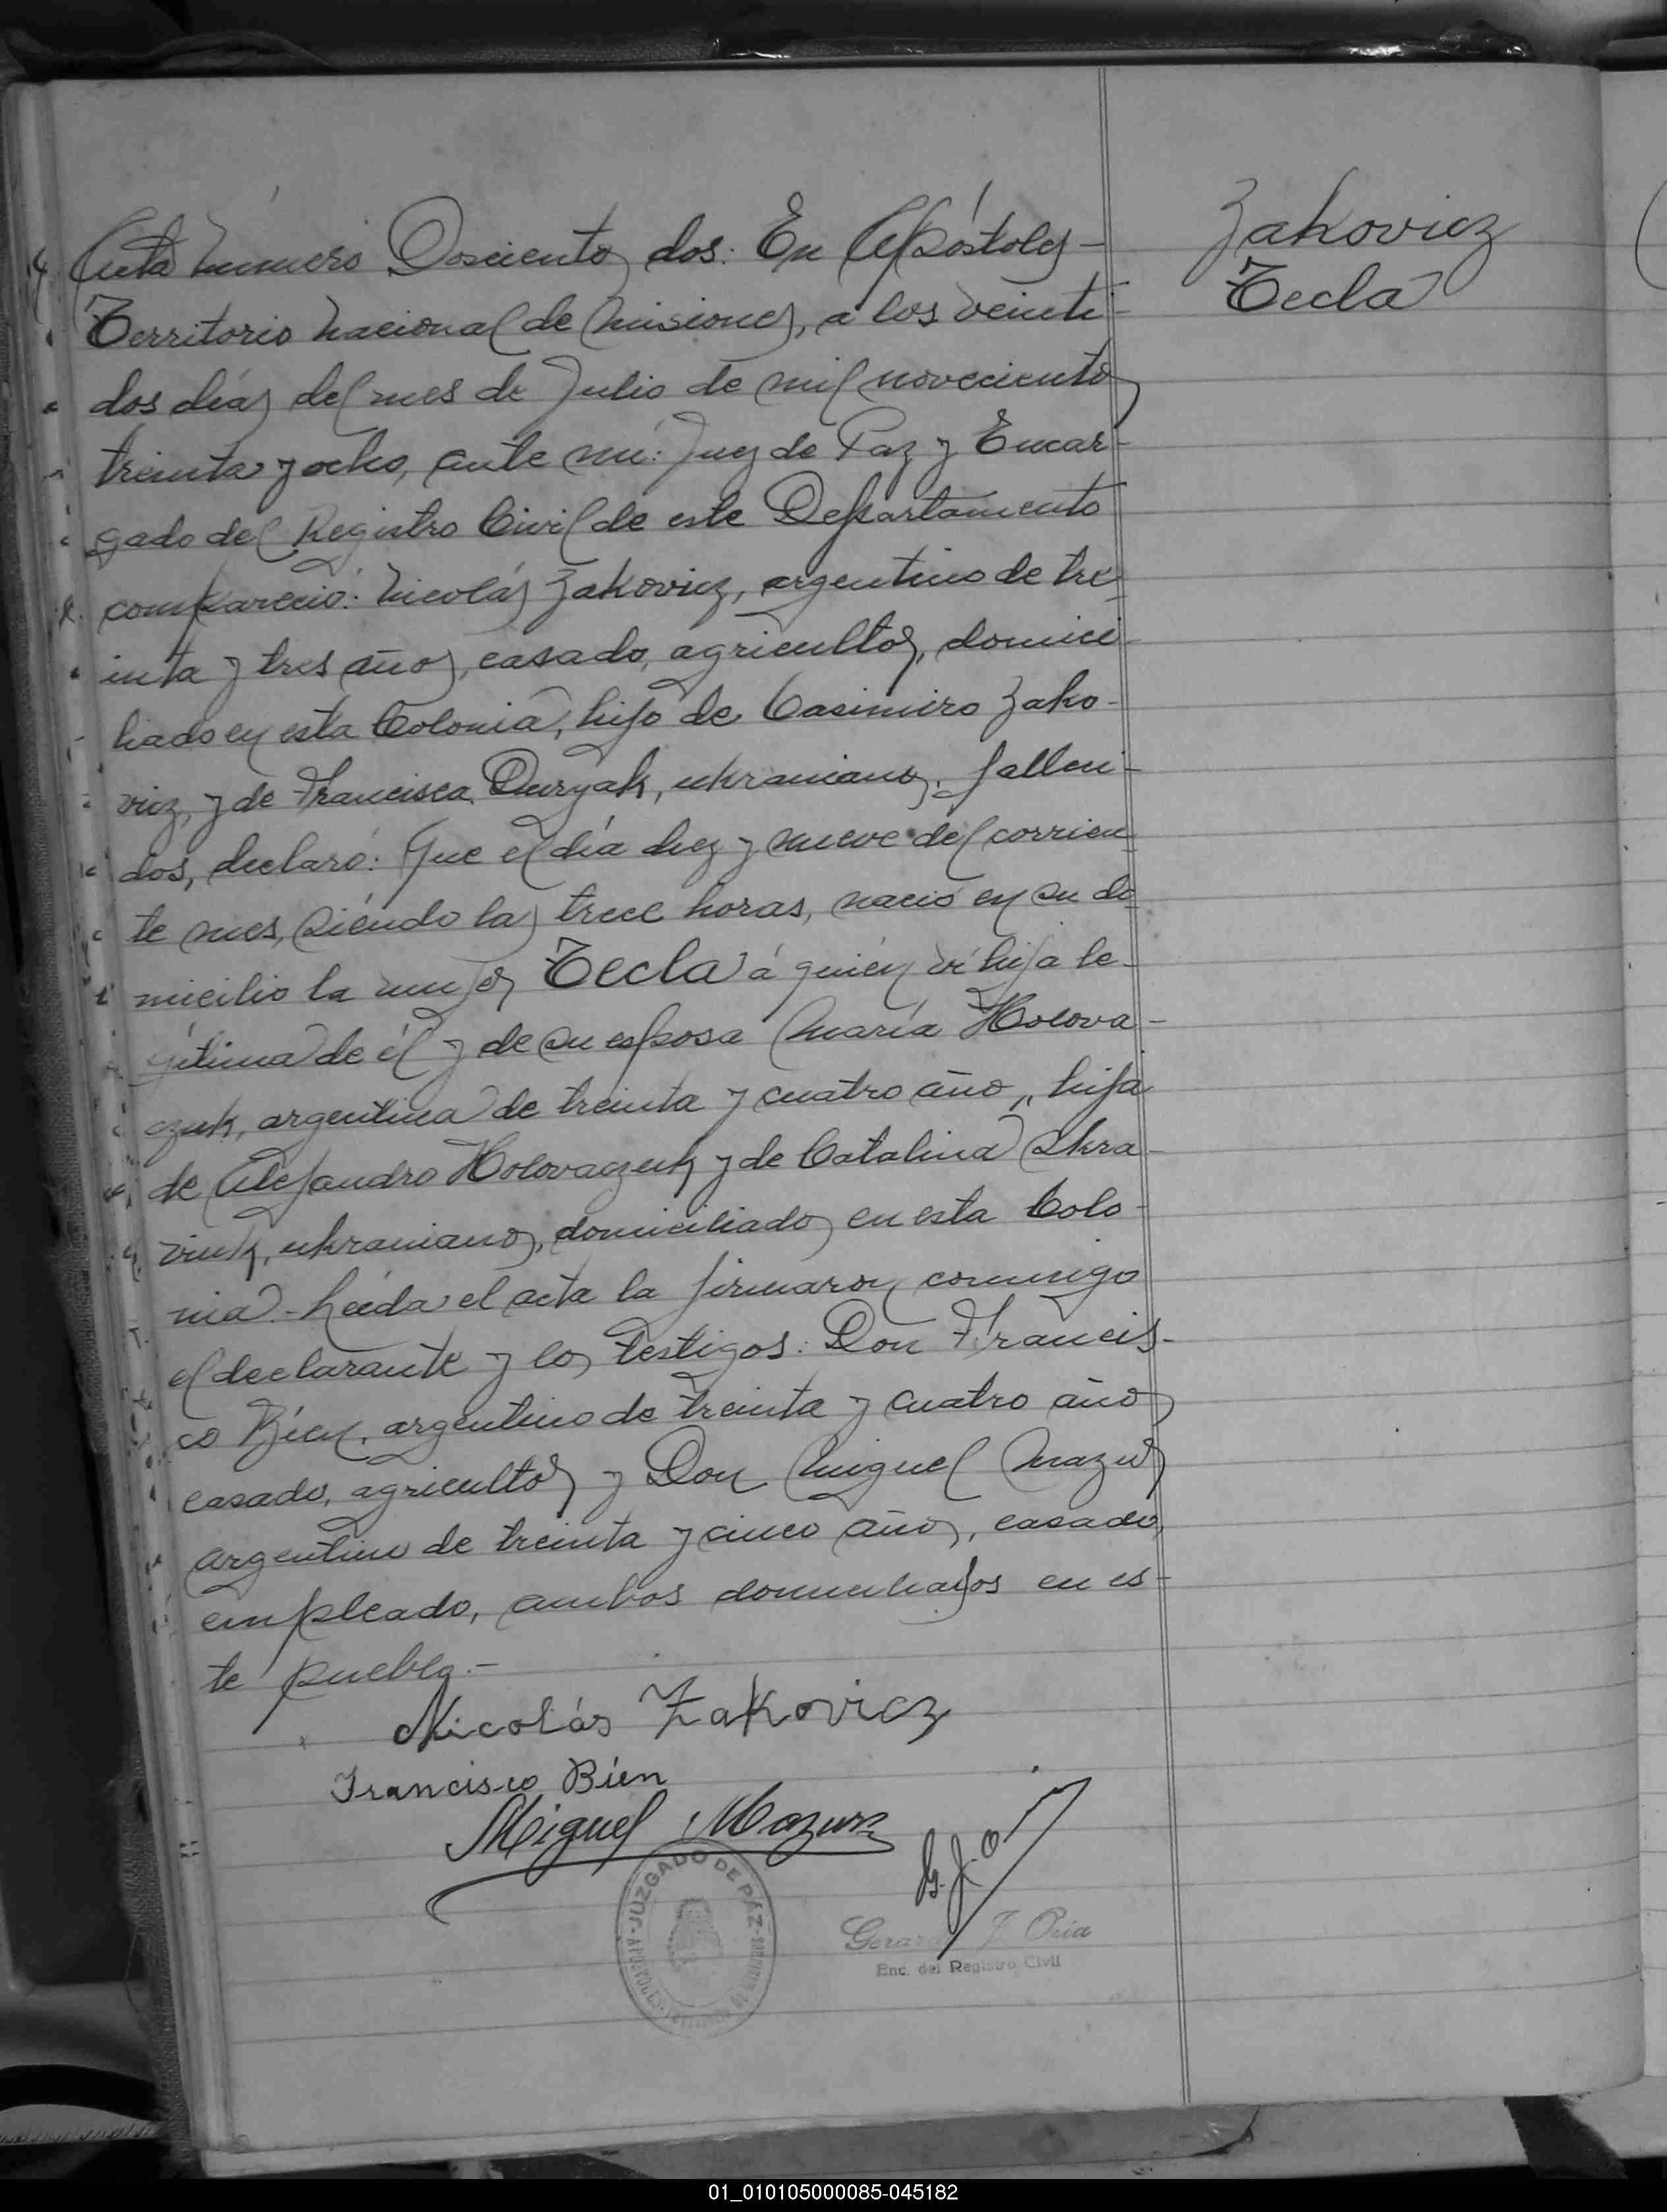 Zakovicz
Tecla
Acta número Doscientos dos: En Apóstoles-
Territorio Nacional de Misiones, a los veinti-
dos días del mes de Julio de mil novecientos
treinta y ocho, ante mí: Juez de Paz y Encar-
gado del Registro Civil de este Departamento
compareció: Nicolás Zakovicz, argentino de tre-
inta y tres años, casado, agricultor, domici-
liado en esta Colonia, hijo de Casimiro Zako-
vicz, y de Francisca, ukranianos, falleci-
dos, declaró: Que el día diez y nueve del corrien-
te mes, siendo las trece horas, nació en su do-
micilio la mujer Tecla á quién ví hija le-
gítima de él y de su esposa María Holova-
czuk, argentina de treinta y cuatro años, hija
de Alejandro Holovaczuk y de Catalina Skra-
ukranianos, domiciliados en esta Colo-
nia.- Leída el acta la firmaron conmigo
el declarante y los testigos: Don Francis-
co Bien, argentino de treinta y cuatro años
casado, agricultor y Don Miguel Mazur
argentino de treinta y cinco años, casado,
empleado, ambos domiciliados en es-
te pueblo.-
Nicolás Zakovicz
Francisco Bien
Miguel Mazur
G. J. O
JUZGADO DE PAZ
APOSTOLES
J. Oria
Enc. del Registro Civil
01_010105000085-045182